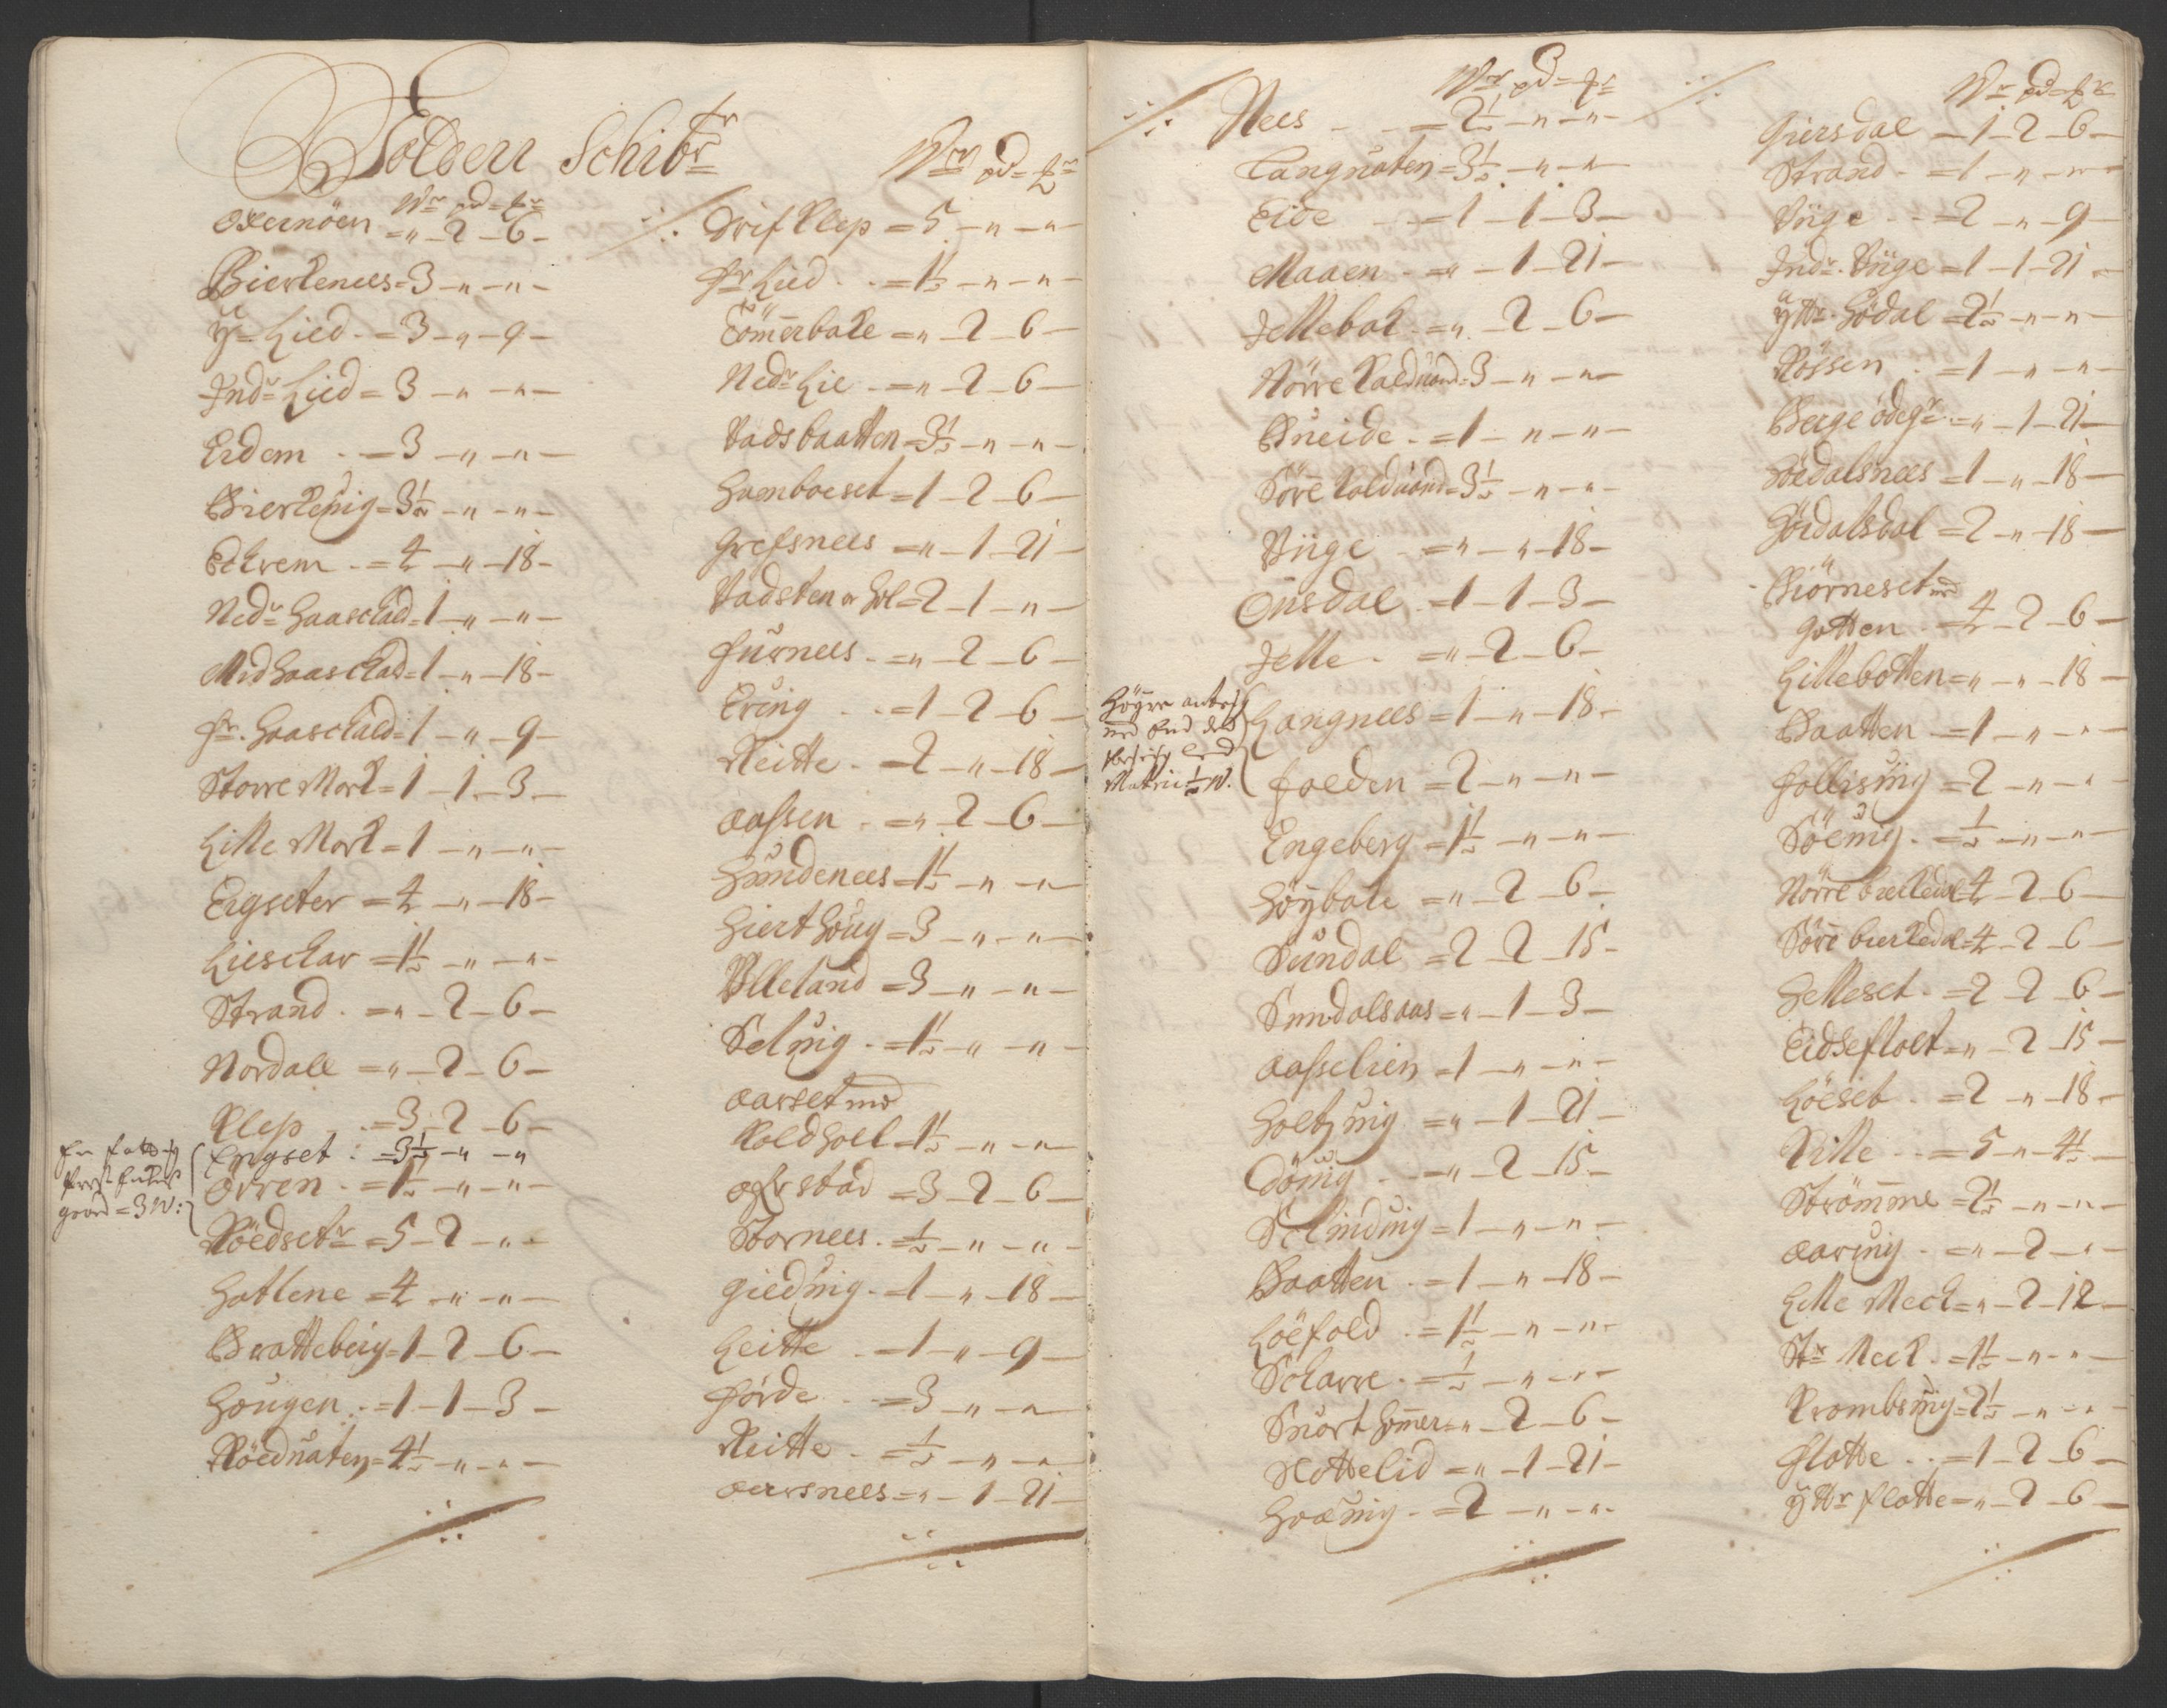 Volden Schibr
Wr pd = Lr
Oxernöen = „ – 2 – 6 –
Bierkenees = 3 – „ – „ –
Ÿr Lied = 3 – „ – 9 –
Indr Lied = 3 – „ – „ –
Erdem = 3 – „ – „ –
Bierkeuig = 3½ – „ – „ –
Echrem = 4 – „ – 18 –
Nedr Haaschad = 1 – „ – „ –
Mid haaschad = 1 – „ – 18 –
fr. Haaschad = 1 – „ – 9 –
Storre Mork = 1 – 1 – 3 –
Lille Mork = 1 – „ – „ –
Eigseter = 4 – „ – 18 –
Lieschar = 1½ – „ – „ –
Strand = „ – 2 – 6 –
Nordall = „ – 2 – 6 –
Klep = 3 – 2 – 6 –
Engset : = 3½ – „ – „
gaard = 3 W:
Ørren = 1½ – „ – „ –
Röedsetr = 5 – 2 – „ –
Hatlene = 4 – „ – „ –
Bratteberg = 1 – 2 – 6 –
Hougen = 1 – 1 – 3 –
Röeduaten = 4½ – „ – „ –
Wr pd = Lr
Drif Klep = 5 – „ – „ –
fr Lied = 1½ – „ – „ –
Tömerbake = „ – 2 – 6 –
Nedr Lie = „ – 2 – 6 –
Vadsbaatten = 3½ – „ – „ –
Hamboeset = 1 – 2 – 6 –
Grefsnees = „ – 1 – 21 –
Vadsten = 2 – 1 – „ –
Furnees = „ – 2 – 6 –
Eruig = 1 – 2 – 6 –
Reitte = 2 – „ – 18 –
Aassen = „ – 2 – 6 –
Hundenees = 1½ – „ – „ –
Hierthoug = 3 – „ – „ –
Ulleland = 3 – „ – „ –
Seluig = 1½ – „ – „ –
Aarset md
Koldhoel = 1½ – „ – „ –
Ofrstad = 3 – 2 – 6 –
Stornees = ½ – „ – „ –
Gieduig = 1 – „ – 18 –
Leitte = 1 – „ – 9 –
Förde = 3 – „ – „ –
Reitte = ½ – „ – „ –
Ørsnees = „ – 1 – 21 –
Wr pd = Lr
Nees = 2½ – „ – „ –
Languaten = 3½ – „ – „ –
Eide = 1 – 1 – 3 –
Maaen = „ – 1 – 21 –
Jellebak = „ – 2 – 6 –
Nörre kalduand = 3 – „ – „ –
Bneide = 1 – „ – „ –
Söre kalduand = 3½ – „ – „ –
Viige = „ – „ – 18 –
Ousdal = 1 – 1 – 3 –
Jelle = „ – 2 – 6 –
Langnees = 1 – „ – 18 –
Matric: ½ W.
Folden = 2 – „ – „ –
Engeberg = 1½ – „ – „ –
Höÿbake = „ – 2 – 6 –
Sundal = 2 – 2 – 15 –
Sundalsaas = „ – 1 – 3 –
Aasselien = 1 – „ – „ –
Holtzuig = „ – 1 – 21 –
Döuig = „ – 2 – 15 –
Selinduig = 1 – „ – „ –
Baatten = 1 – „ – 18 –
Löefold = 1½ – „ – „ –
Scharre = ½ – „ – „ –
Suorthamer = „ – 2 – 6 –
Nottelid = „ – 1 – 21 –
Hoeuig = 2 – „ – „ –
Wr pd = Lr
Giersdal = 1 – 2 – 6 –
Strand = 1 – „ – „ –
Viige = 2 – „ – 9 –
Indr. Viige = 1 – 1 – 21 –
Ÿttr. Hödal = 2½ – „ – „ –
Rössen = 1 – „ – „ –
Berge ödegr = „ – 1 – 21 –
Höedalsnees = 1 – „ – 18 –
Hördalsdal = 2 – „ – 18 –
Biörneset md
Gotten = 4 – 2 – 6 –
Lillebotten = „ – „ – 18 –
Baatten = 1 – „ – „ –
Follisuiig = 2 – „ – „ –
Söeuig = ½ – „ – „ –
Nörre biekedal = 4 – 2 – 6 –
Söre biekedal = 4 – 2 – 6 –
Helleset = 2 – 2 – 6 –
Eidseflaet = „ – 2 – 15 –
Löeset = 2 – „ – 18 –
Kille = 5 – „ – 4½ –
Strömme = 2½ – „ – „ –
Aaruig = „ – 2 – „ –
Lille Meck = „ – 2 – 12 –
Str Meck = 1½ – „ – „ –
Krombsuig = 2½ – „ – „ –
Flotte = 1 – 2 – 6 –
Ÿttr flotte = „ – 2 – 6 –